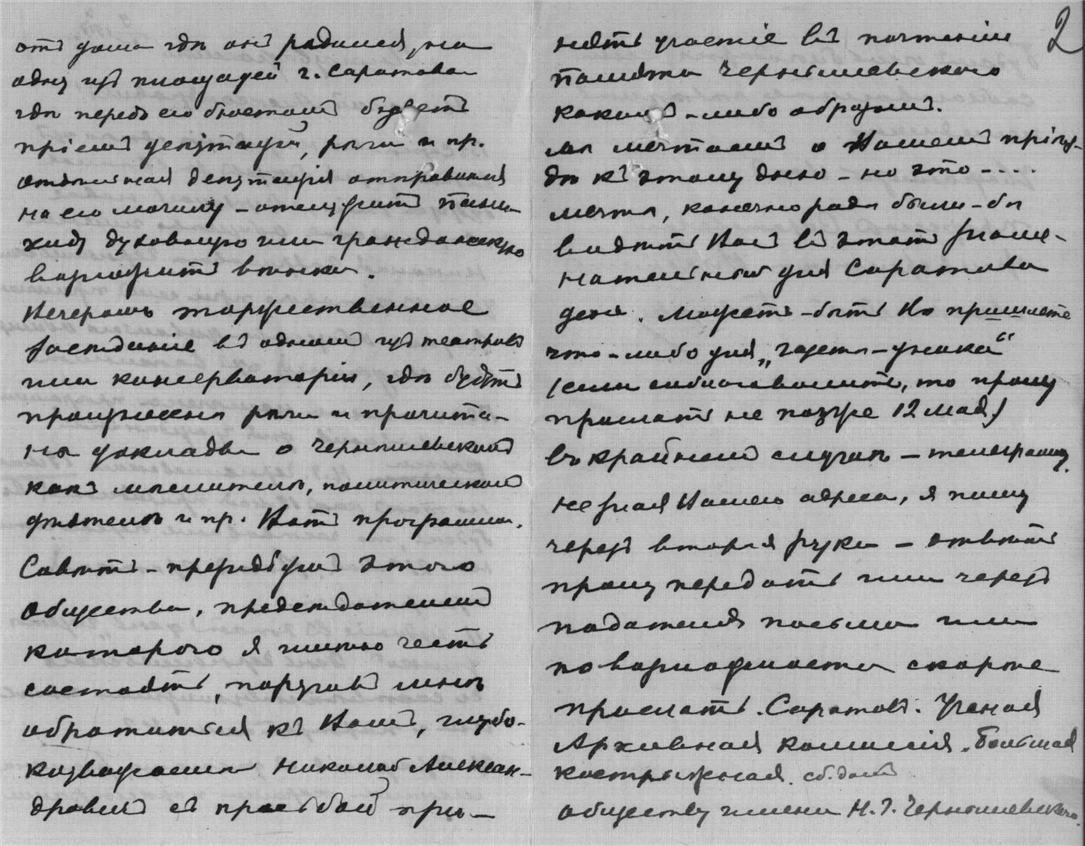 отъ дома гдѣ онъ родился, на
одну изъ площадей г. Саратова
гдѣ передъ его бюстомъ будетъ
пріемъ депутацій, рѣчи и пр.
отдѣльная депутація отправится
на его могилу – отслужитъ пани-
хиду духовную или гражданскую
возложитъ вѣнки.
Вечеромъ торжественное
засѣданіе въ одномъ изъ театровъ
или консерваторіи, гдѣ будутъ
произнесены рѣчи и прочита-
ны доклады о Чернышевскомъ
какъ мыслителѣ, политическомъ
дѣятелѣ и пр. Вотъ программа.
Совѣтъ – президіумъ этого
общества, предсѣдателемъ
котораго я имѣю честь
состоять, поручилъ мнѣ
обратиться къ Вамъ, глубо-
коуважаемый Николай Алексан-
дровичъ съ просьбой при-
2
нять участіе въ почтеніи
памяти Чернышевского
какимъ-либо образомъ.
Мы мечтаемъ о Вашемъ пріѣз-
дѣ къ этому дню – но это – ....
мечта, конечно рады были-бы
видѣть Васъ въ этотъ знаме-
нательный для Саратова
день. Можетъ-быть Вы пришлете
что-либо для „газеты-уника“
(если соблаговолите, то прошу
прислать не позже 12 мая)
въ крайнемъ случаѣ – телеграмму.
не зная Вашего адреса, я пишу
черезъ вторыя руки – отвѣтъ
прошу передать или черезъ
подателя письма или
по возможности скорѣе
прислать. Саратовъ. Ученая
Архивная комиссія. Большая
Кострижная
обществу имени Н. Г. Чернышевскаго.